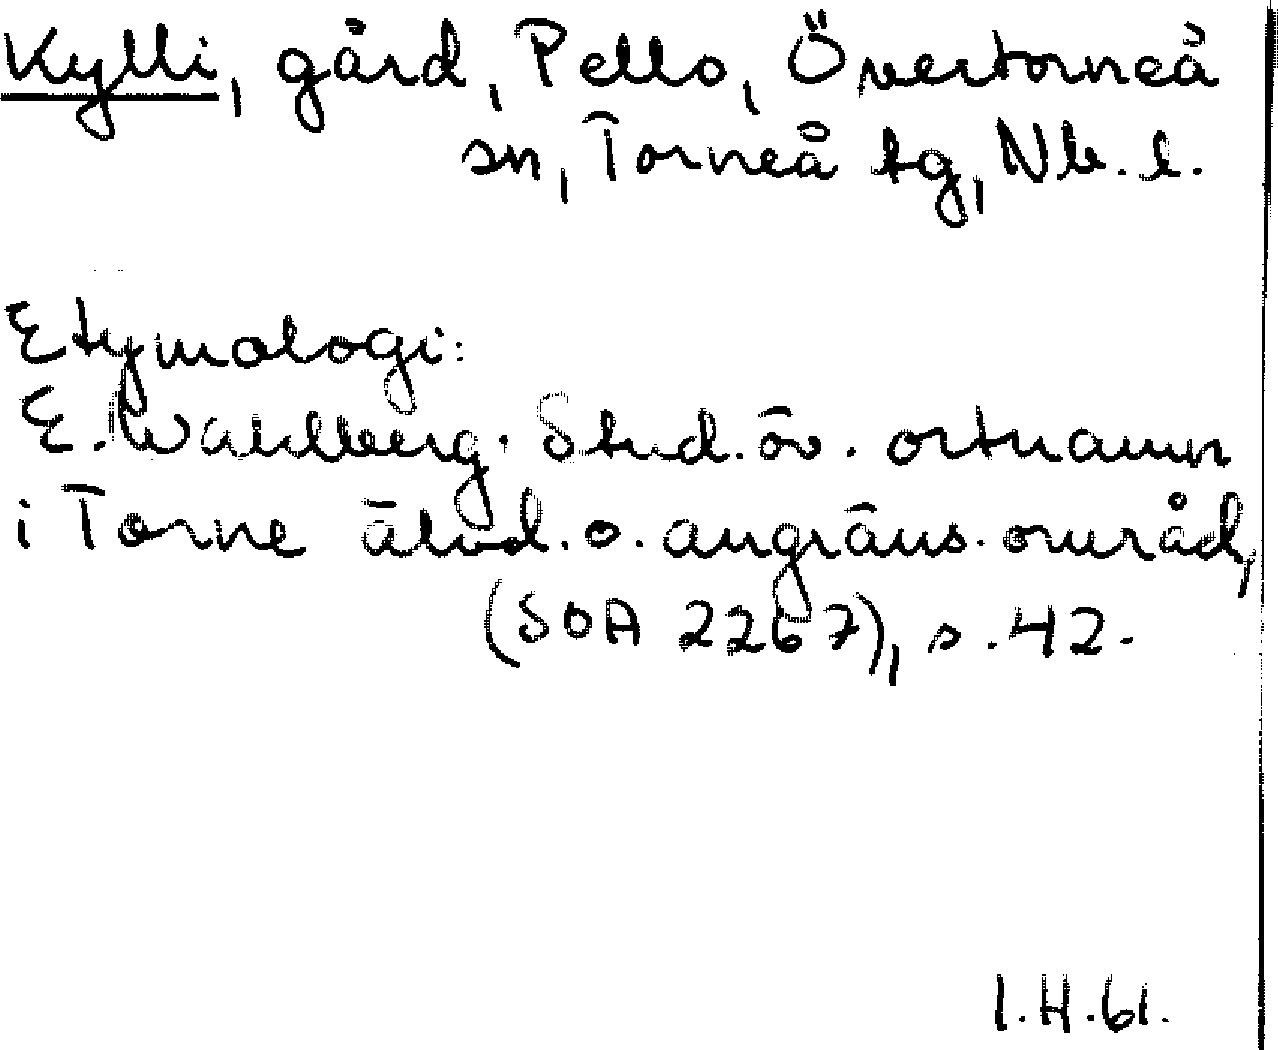 Kylli, gård, Pello, Övertorneå
sn, Torneå tg, Nb. l.
Etymologi:
E. Wahlberg. Stud. öv. ortnamn
i Torne älvd. o. angräns. område,
(SOA 2267), s. 42.
I.H.61.